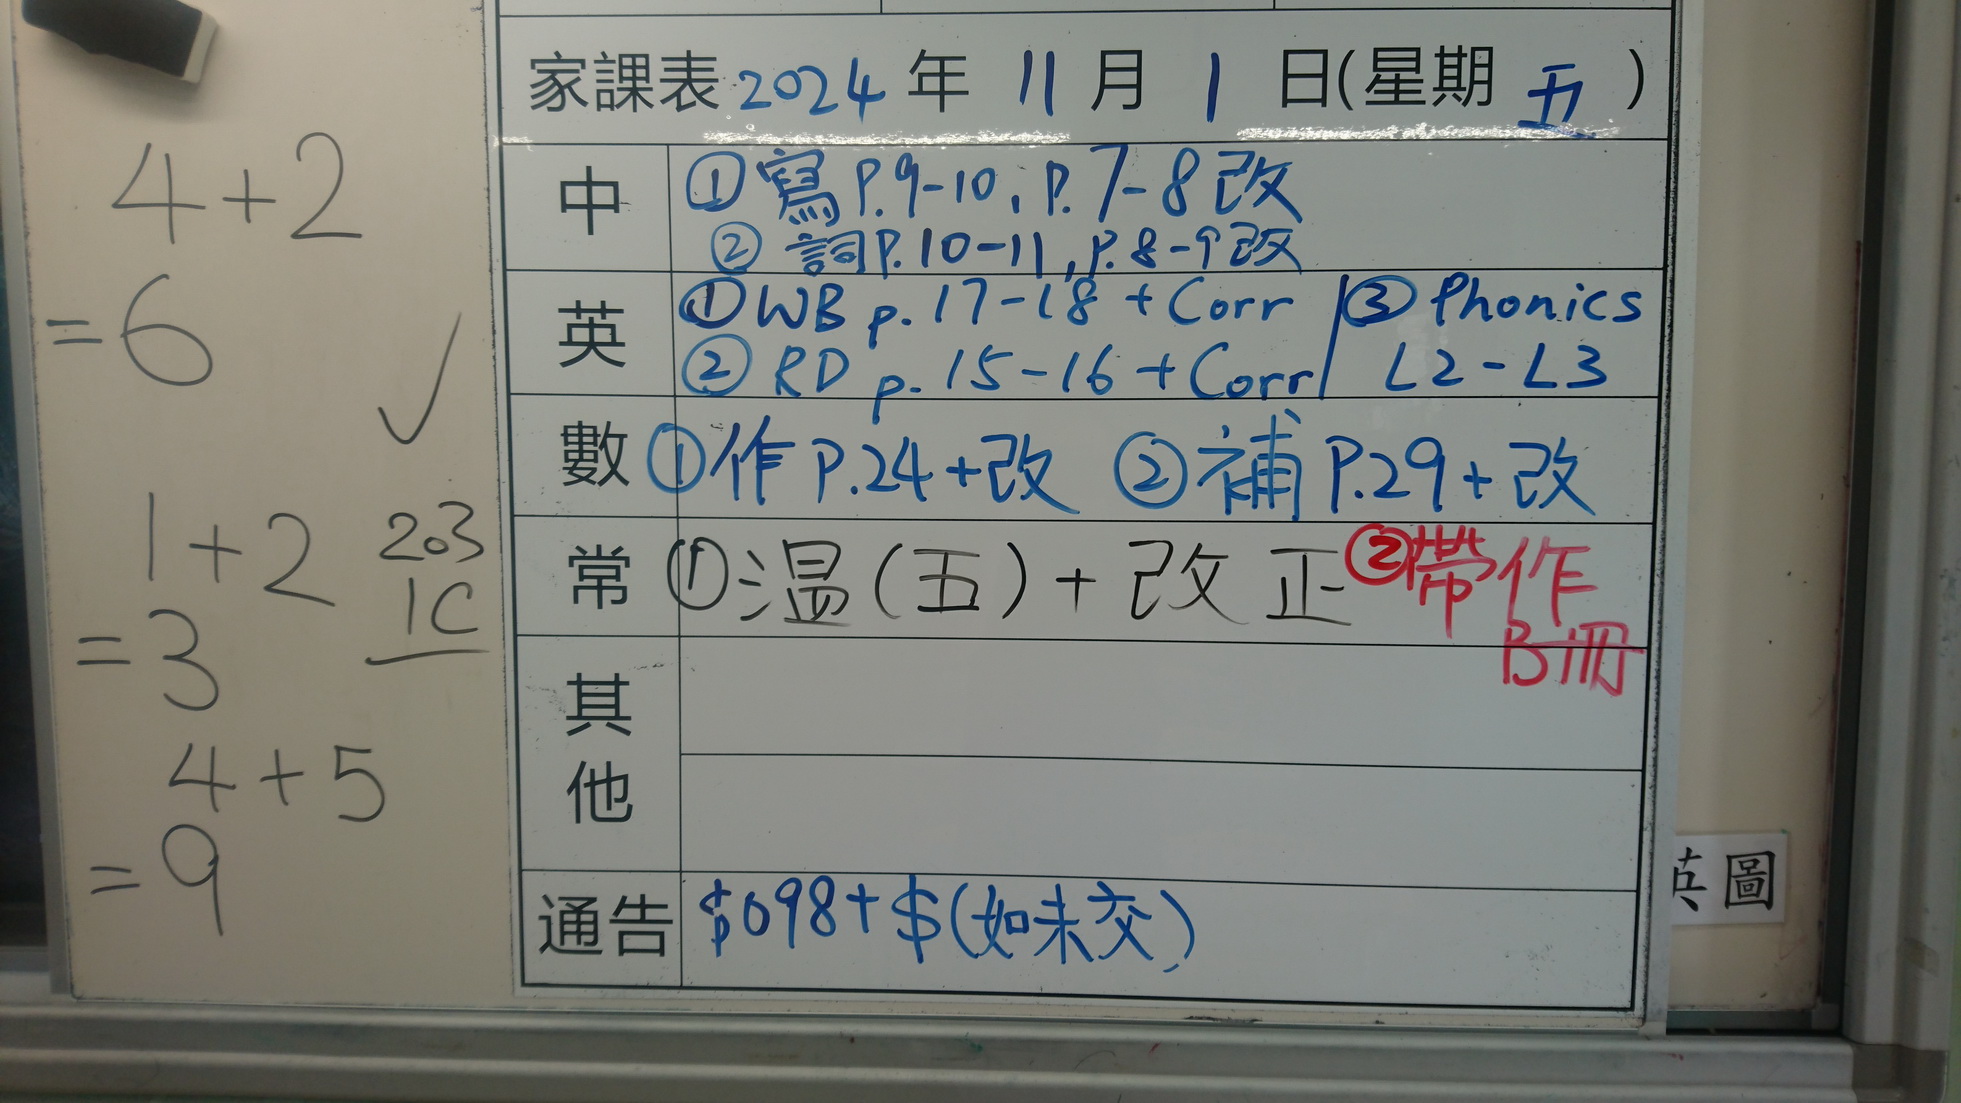 4+2
=6
1+2
=3
203
1C
4+5
=9
家課表 2024 年 11 月 1 日(星期 五 )
中 ①寫P.9-10, P.7-8改
②詞P.10-11, P.8-9改
英 ①WB p.17-18 + Corr
②RD p.15-16 + Corr
③Phonics
L2-L3
數 ①作P.24+改 ②補P.29+改
常 ①温(五)+改正 ②帶作
B冊
其他
通告 $098+$(如未交)
圖